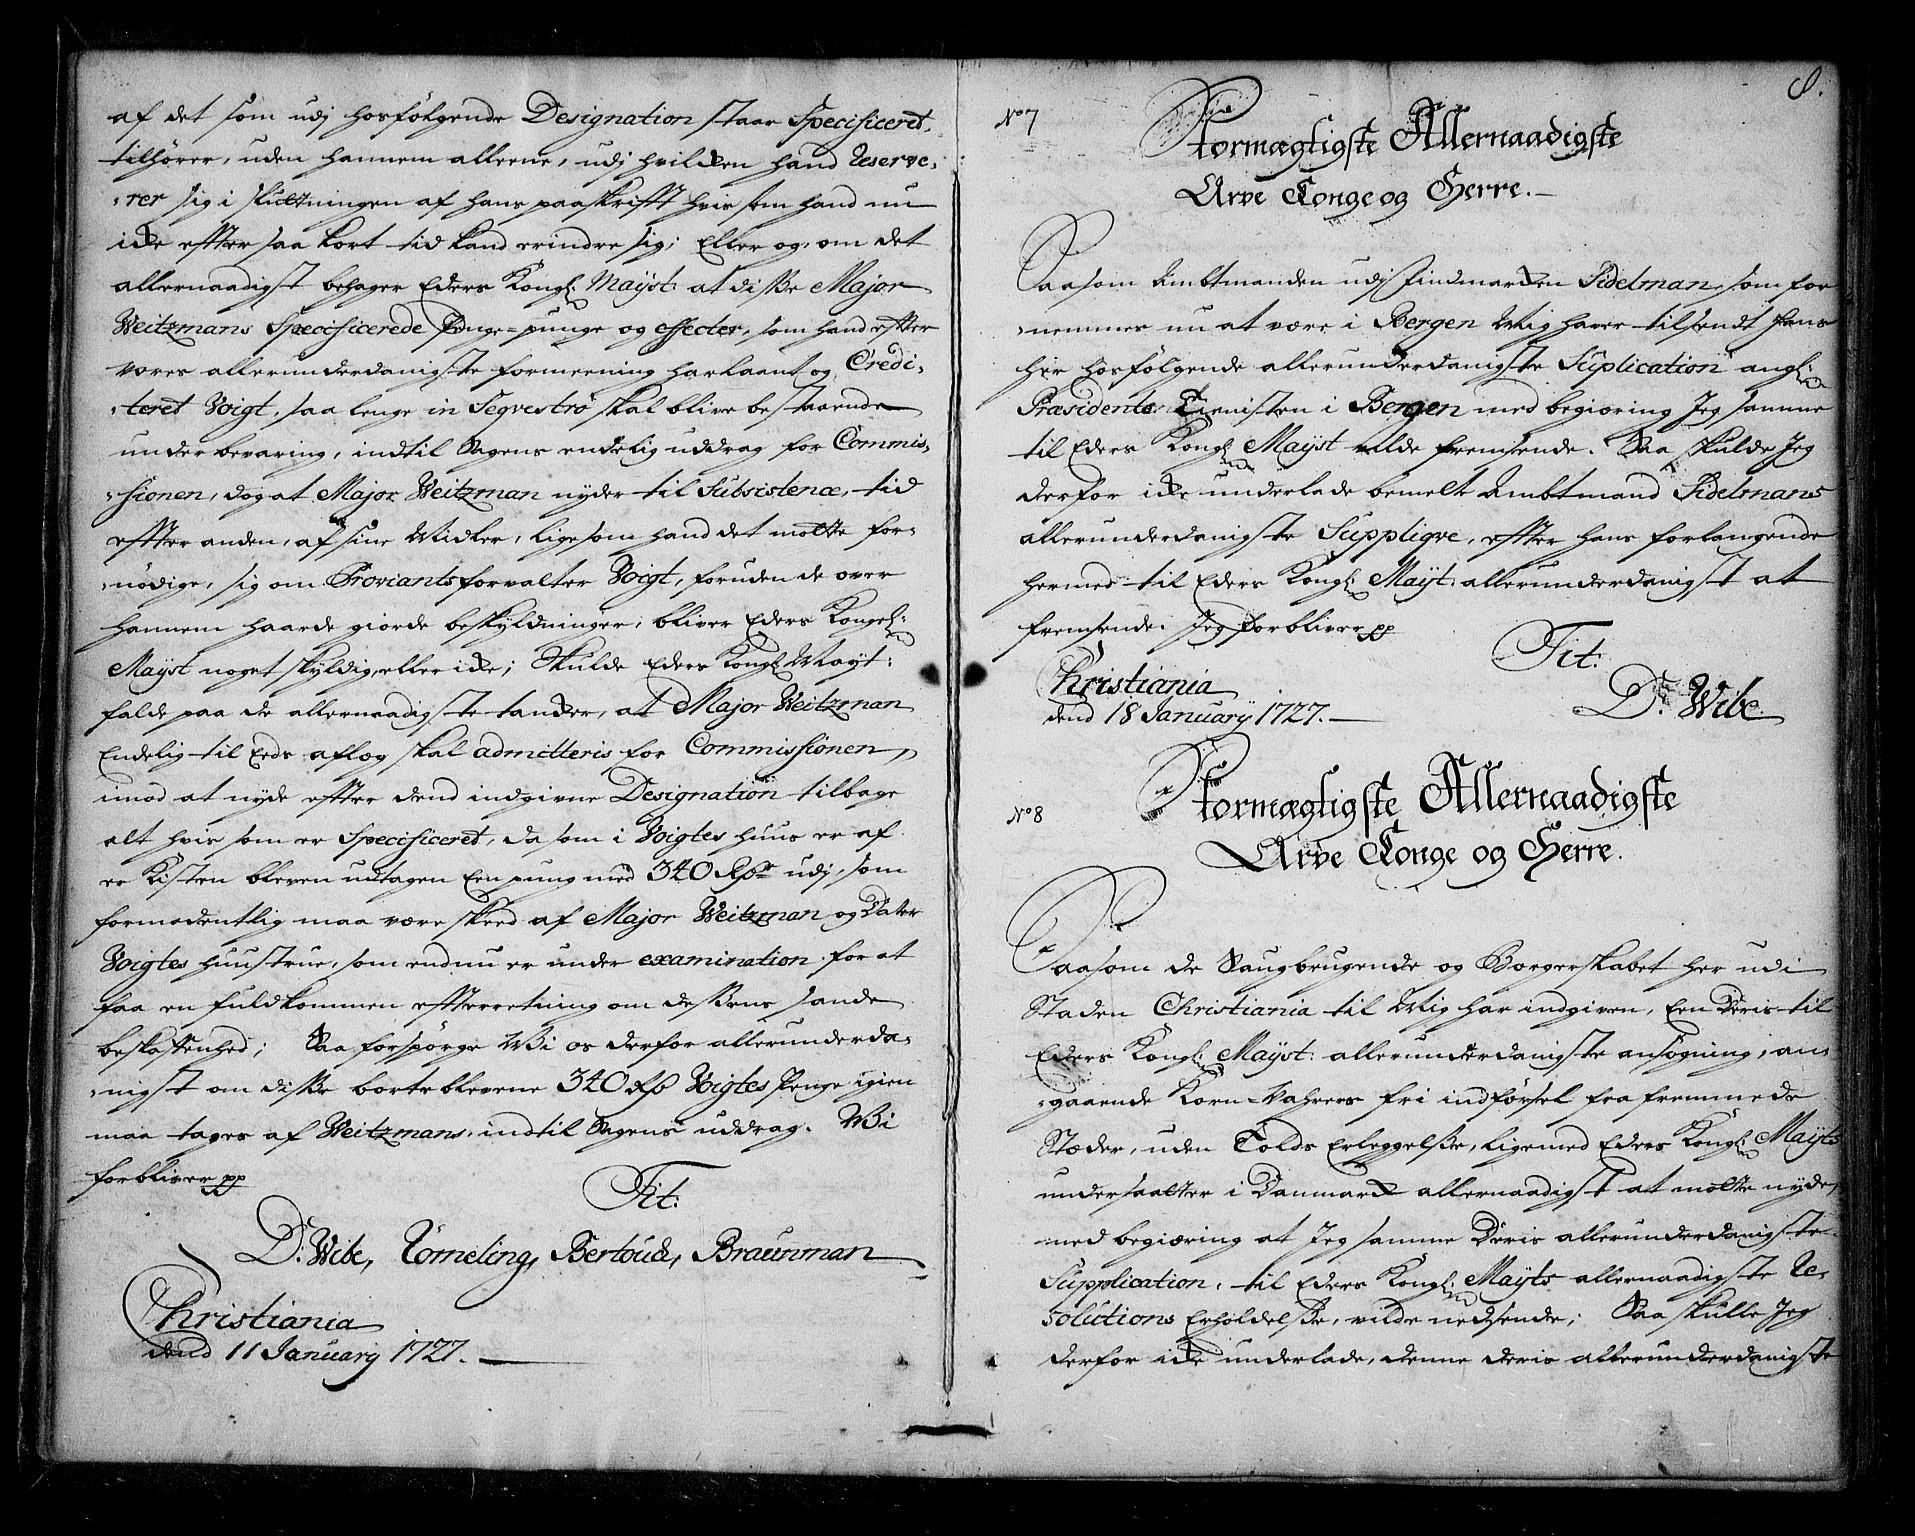 af det som udj hosfölgende Designation staar Specificeret,
tilhörer, uden hannem alleene, udj hvilken hand Reserve-
rer sig i skiltningen af hans paaskrifft hvis som hand nu
icke effter saa kort tid kand erindre sig; Eller og, om det
allernaadigst behager Eders Kongl: Mayst: at disse Major
Weitzmans Specificerede Penge-punge og effecter, som hand effter
vores allerunderdanigste formeening har laant og Credi-
teret Voigt, saa lenge in Seqveströ skal blive bestaaende
under bevaring, indtil Sagens endelig uddrag for Commis-
sionen, dog at Major Weitzman nyder til Subsistence, tid
effter anden, af sine Midler, ligesom hand det motte for-
nödige, sig om Proviantsforvalter Voigt, foruden de over
hannem haarde giorde beskyldninger, bliver Eders Kongel:
Mayst noget skyldig, eller icke; Skulde Eders Kongl Mayt:
falde paa de allernaadigste tancker, at Major Weitzman
Endelig til Eeds aflæg skal admitteris for Commissionen,
imod at nyde effter dend indgivne Designation tilbage
alt hvis som er Specificeret, da som i Voigtes huus er af
er Kisten bleven udtagen Een pung med 340 Rdr udj, som
formodentlig maa være skeed af Major Weitzman og
Voigtes huustrue, som endnu er under examination for at
faa en fuldkommen effterretning om dessens sande
beskaffenhed; Saa forspörge Wi os derfor allerunderda-
nigst om disse borteblevene 340 Rd Voigtes Penge igien
maa tages af Weitzmans, indtil Sagens uddrag. Wi
forbliver pp
Tit:
D: Wibe, Römeling, Bertouch, Braunman
Christiania
dend 11 January 1727.
8.
No 7
Stormægtigste Allernaadigste
Arve Konge og Herre.
Saasom Ambtmanden udj Findmarcken Sidelman, som for
nemmes nu at være i Bergen Mig haver tilsendt hans
her hosfölgende allerunderdanigste Suplication angl:
Præsidents Tienisten i Bergen med begiæring Jeg samme
til Eders Kongl Mayst vilde fremsende. Saa skulde Jeg
derfor icke underlade bemelte Ambtmand Sidelmans
allerunderdanigste Suppliqve, effter hans forlangende
hermed til Eders Kongl: Mayt: allerunderdanigst at
fremsende. Jeg forbliver pp
Tit:
Christiania
dend 18 January 1727.
D. Wibe.
No 8
Stormægtigste Allernaadigste
Arve Konge og Herre.
Saasom de Saugbrugende og Borgerskabet her udi
Staden Christiania til Mig har indgiven, Een Deris til
Eders Kongl: Mayst: allerunderdanigste ansögning, an-
gaaende Korn-Vahrers fri indförsel fra fremmede
Stæder, uden Tolds Erleggelse, ligemed Eders Kongl: Mayts
undersaatter i Danmarck allernaadigst at motte nyde,
med begiæring at Jeg samme Deris allerunderdanigste
Supplication, til Eders Kongl: Mayts allernaadigste Re-
solutions Erholdelse, vilde nedsende; Saa skulle Jeg
derfor icke underlade, denne deris allerunderdanigste